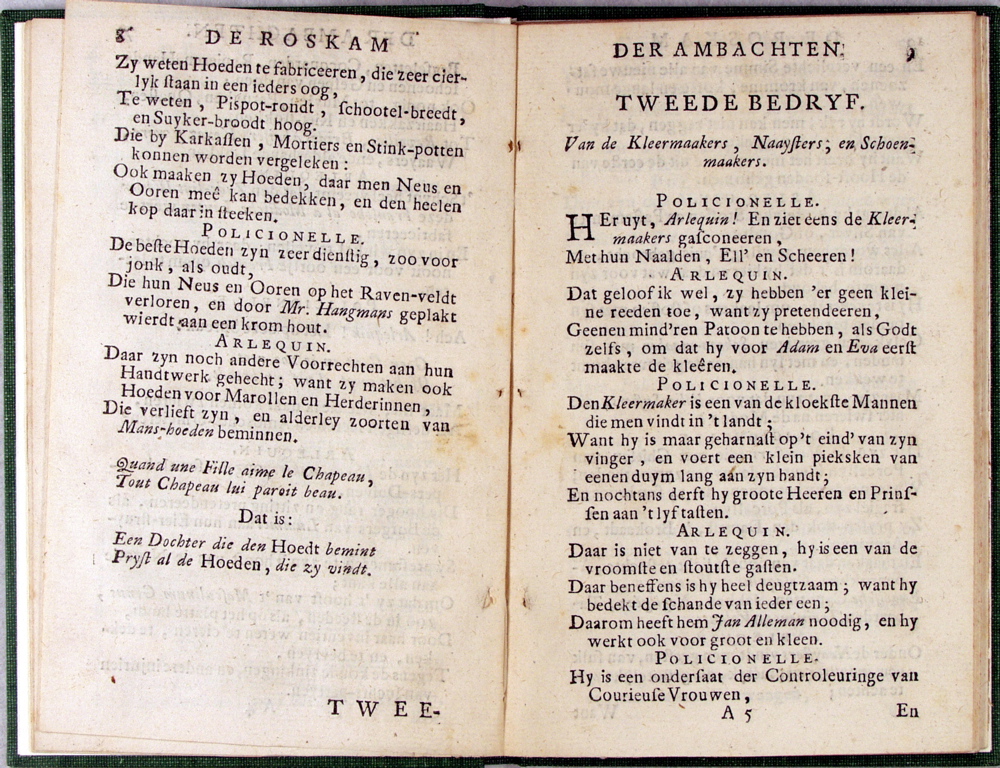 8 DE ROSKAM
Zy weten Hoeden te fabriceeren, die zeer cier-
lyk ſtaan in een ieders oog,
Te weten, Pispot-rondt, ſchootel-breedt,
en Suyker-broodt hoog.
Die by Karkaſſen, Mortiers en Stink-potten
konnen worden vergeleken:
Ook maaken zy Hoeden, daar men Neus en
Ooren meê kan bedekken, en den heelen
kop daar in ſteeken.
POLICIONELLE.
De beſte Hoeden zyn zeer dienſtig, zoo voor
jonk, als oudt,
Die hun Neus en Ooren op het Raven-veldt
verloren, en door Mr. Hangmans geplakt
wierdt aan een krom hout.
ARLEQUIN.
Daar zyn noch andere Voorrechten aan hun
Handtwerk gehecht; want zy maken ook
Hoeden voor Marollen en Herderinnen,
Die verlieft zyn, en alderley zoorten van
Mans-hoeden beminnen.
Quand une Fille aime le Chapeau,
Tout Chapeau lui paroit beau.
Dat is:
Een Dochter die den Hoedt bemint
Pryſt al de Hoeden, die zy vindt.
TWEE-
DER AMBACHTEN. 9
TWEEDE BEDRYF.
Van de Kleermaakers, Naayſters, en Schoen-
maakers.
POLICIONELLE.
HEr uyt, Arlequin! En ziet eens de Kleer-
maakers gaſconeeren,
Met hun Naalden, Ell' en Scheeren!
ARLEQUIN.
Dat geloof ik wel, zy hebben 'er geen klei-
ne reeden toe, want zy pretendeeren,
Geenen mind'ren Patoon te hebben, als Godt
zelfs, om dat hy voor Adam en Eva eerſt
maakte de kleêren.
POLICIONELLE.
Den Kleermaker is een van de kloekſte Mannen
die men vindt in 't landt;
Want hy is maar geharnaſt op 't eind' van zyn
vinger, en voert een klein pieksken van
eenen duym lang aan zyn handt;
En nochtans derft hy groote Heeren en Prinſ-
ſen aan 't lyf taſten.
ARLEQUIN.
Daar is niet van te zeggen, hy is een van de
vroomſte en ſtoutſte gaſten.
Daar beneffens is hy heel deugtzaam; want hy
bedekt de ſchande van ieder een;
Daarom heeft hem Jan Alleman noodig, en hy
werkt ook voor groot en kleen.
POLICIONELLE.
Hy is een onderſaat der Controleuringe van
Courieuſe Vrouwen,
A 5 En